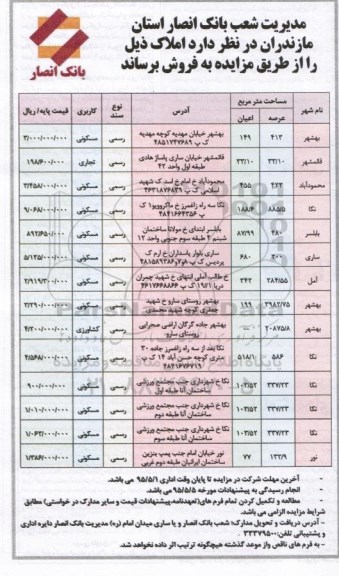 مدیریت شعب بانک انصار استان
مازندران در نظر دارد املاک ذیل
را از طریق مزایده به فروش برساند
بانک انصار
نام شهر مساحت متر مربع آدرس نوع سند کاربری قیمت پایه/ ریال
عرصه اعیان
بهشهر ۴۱۳ ۱۴۹ بهشهر خیابان مهدیه کوچه مهدیه رسمی مسکونی ۳/۰۰۰/۰۰۰/۰۰۰
ک پ ۴۸۵۱۷۴۷۶۸۹
قائمشهر ۳۳/۱۰ ۳۳/۱۰ قائمشهر خیابان ساری پاساژ هادی رسمی تجاری ۱۹۸/۶۰۰/۰۰۰
طبقه اول واحد ۴۳
محمودآباد ۴۷۳ ۴۵۵ محمودآباد خ امام خ اسدک شهید رسمی مسکونی ۳/۴۵۸/۰۰۰/۰۰۰
اسلامی ک پ ۴۶۳۱۸۷۶۸۳۹
نکا ۸۸۵/۵ ۱۸۸/۴ نکا سه راه زاغمرز خ ماکروویو۱ ک رسمی مسکونی ۹/۰۶۸/۰۰۰/۰۰۰
پ ۴۸۴۱۶۶۴۳۵۶
بابلسر ۴۸۰ ۸۷/۹۹ بابلسر ابتدای خ مولانا ساختمان رسمی مسکونی ۸۹۲/۶۵۰/۰۰۰
شبنم ۲ طبقه سوم جنوبی واحد ۱۲
ساری ۳۰۰ ۶۸۰ ساری بلوار پاسداران خ ارم ک رسمی مسکونی ۵/۱۲۵/۰۰۰/۰۰۰
آمل ۲۸۴/۵۵ ۳۴۲ خ طالب آملی انتهای خ شهید چمران رسمی مسکونی ۲/۹۱۹/۳۰۰/۰۰۰
دریا ۱۹/۲۱ ک پ ۴۶۱۷۶۶۸۸۶۶
بهشهر ۳۹۸۲/۷۵ ۱۹۹ بهشهر روستای سارو خ شهید رسمی مسکونی ۳/۲۹۰/۰۰۰/۰۰۰
جعفری کوچه شهید محمدی
بهشهر ۲۰۸۷۵/۸ — بهشهر جاده گرگان اراضی صحرایی رسمی کشاورزی ۴/۲۰۰/۰۰۰/۰۰۰
روستای سارو
نکا ۵۸۶ ۵۱۸/۱ نکا بعد از سه راه زاغمرز جاده ۳۰ رسمی مسکونی ۴/۵۶۸/۰۰۰/۰۰۰
متری کوچه حسن آباد ۱۴ ک پ
۴۸۴۱۶۷۶۷۱۹
نکا ۳۳۷/۲۳ ۱۰۳/۵۲ نکا خ شهرداری جنب مجتمع ورزشی رسمی مسکونی ۹۰۰/۰۰۰/۰۰۰
ساختمان آنا طبقه اول
نکا ۳۳۷/۲۳ ۱۰۳/۵۲ نکا خ شهرداری جنب مجتمع ورزشی رسمی مسکونی ۱/۰۱۰/۰۰۰/۰۰۰
ساختمان آنا طبقه دوم
نکا ۳۳۷/۲۳ ۱۰۳/۵۲ نکا خ شهرداری جنب مجتمع ورزشی رسمی مسکونی ۱/۰۶۳/۰۰۰/۰۰۰
ساختمان آنا طبقه سوم
نور ۱۳۳/۹ ۷۷ نور خیابان امام جنب پمپ بنزین رسمی مسکونی ۱/۳۸۶/۰۰۰/۰۰۰
ساختمان ایرانیان طبقه دوم غربی
- آخرین مهلت شرکت در مزایده تا پایان وقت اداری ۹۵/۵/۱ می باشد.
- انجام رسیدگی به پیشنهادات مورخه ۹۵/۵/۵ می باشد.
- مطالعه و تکمیل کردن تمام فرم های(تعهدنامه،پیشنهادات قیمت و سایر مدارک در خواستی) مطابق
شرایط مزایده الزامی می باشد.
- آدرس دریافت و تحویل مدارک: شعب بانک انصار و یا ساری میدان امام (ره) مدیریت بانک انصار دایره اداری
و پشتیبانی تلفن: ۳۳۳۷۹۵۰۰
- به فرم های ناقص واز موعد گذشته هیچگونه ترتیب اثر داده نخواهد شد.